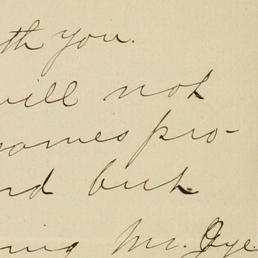 th you.
will not
names pro-
nd but
ing Mr. Gye